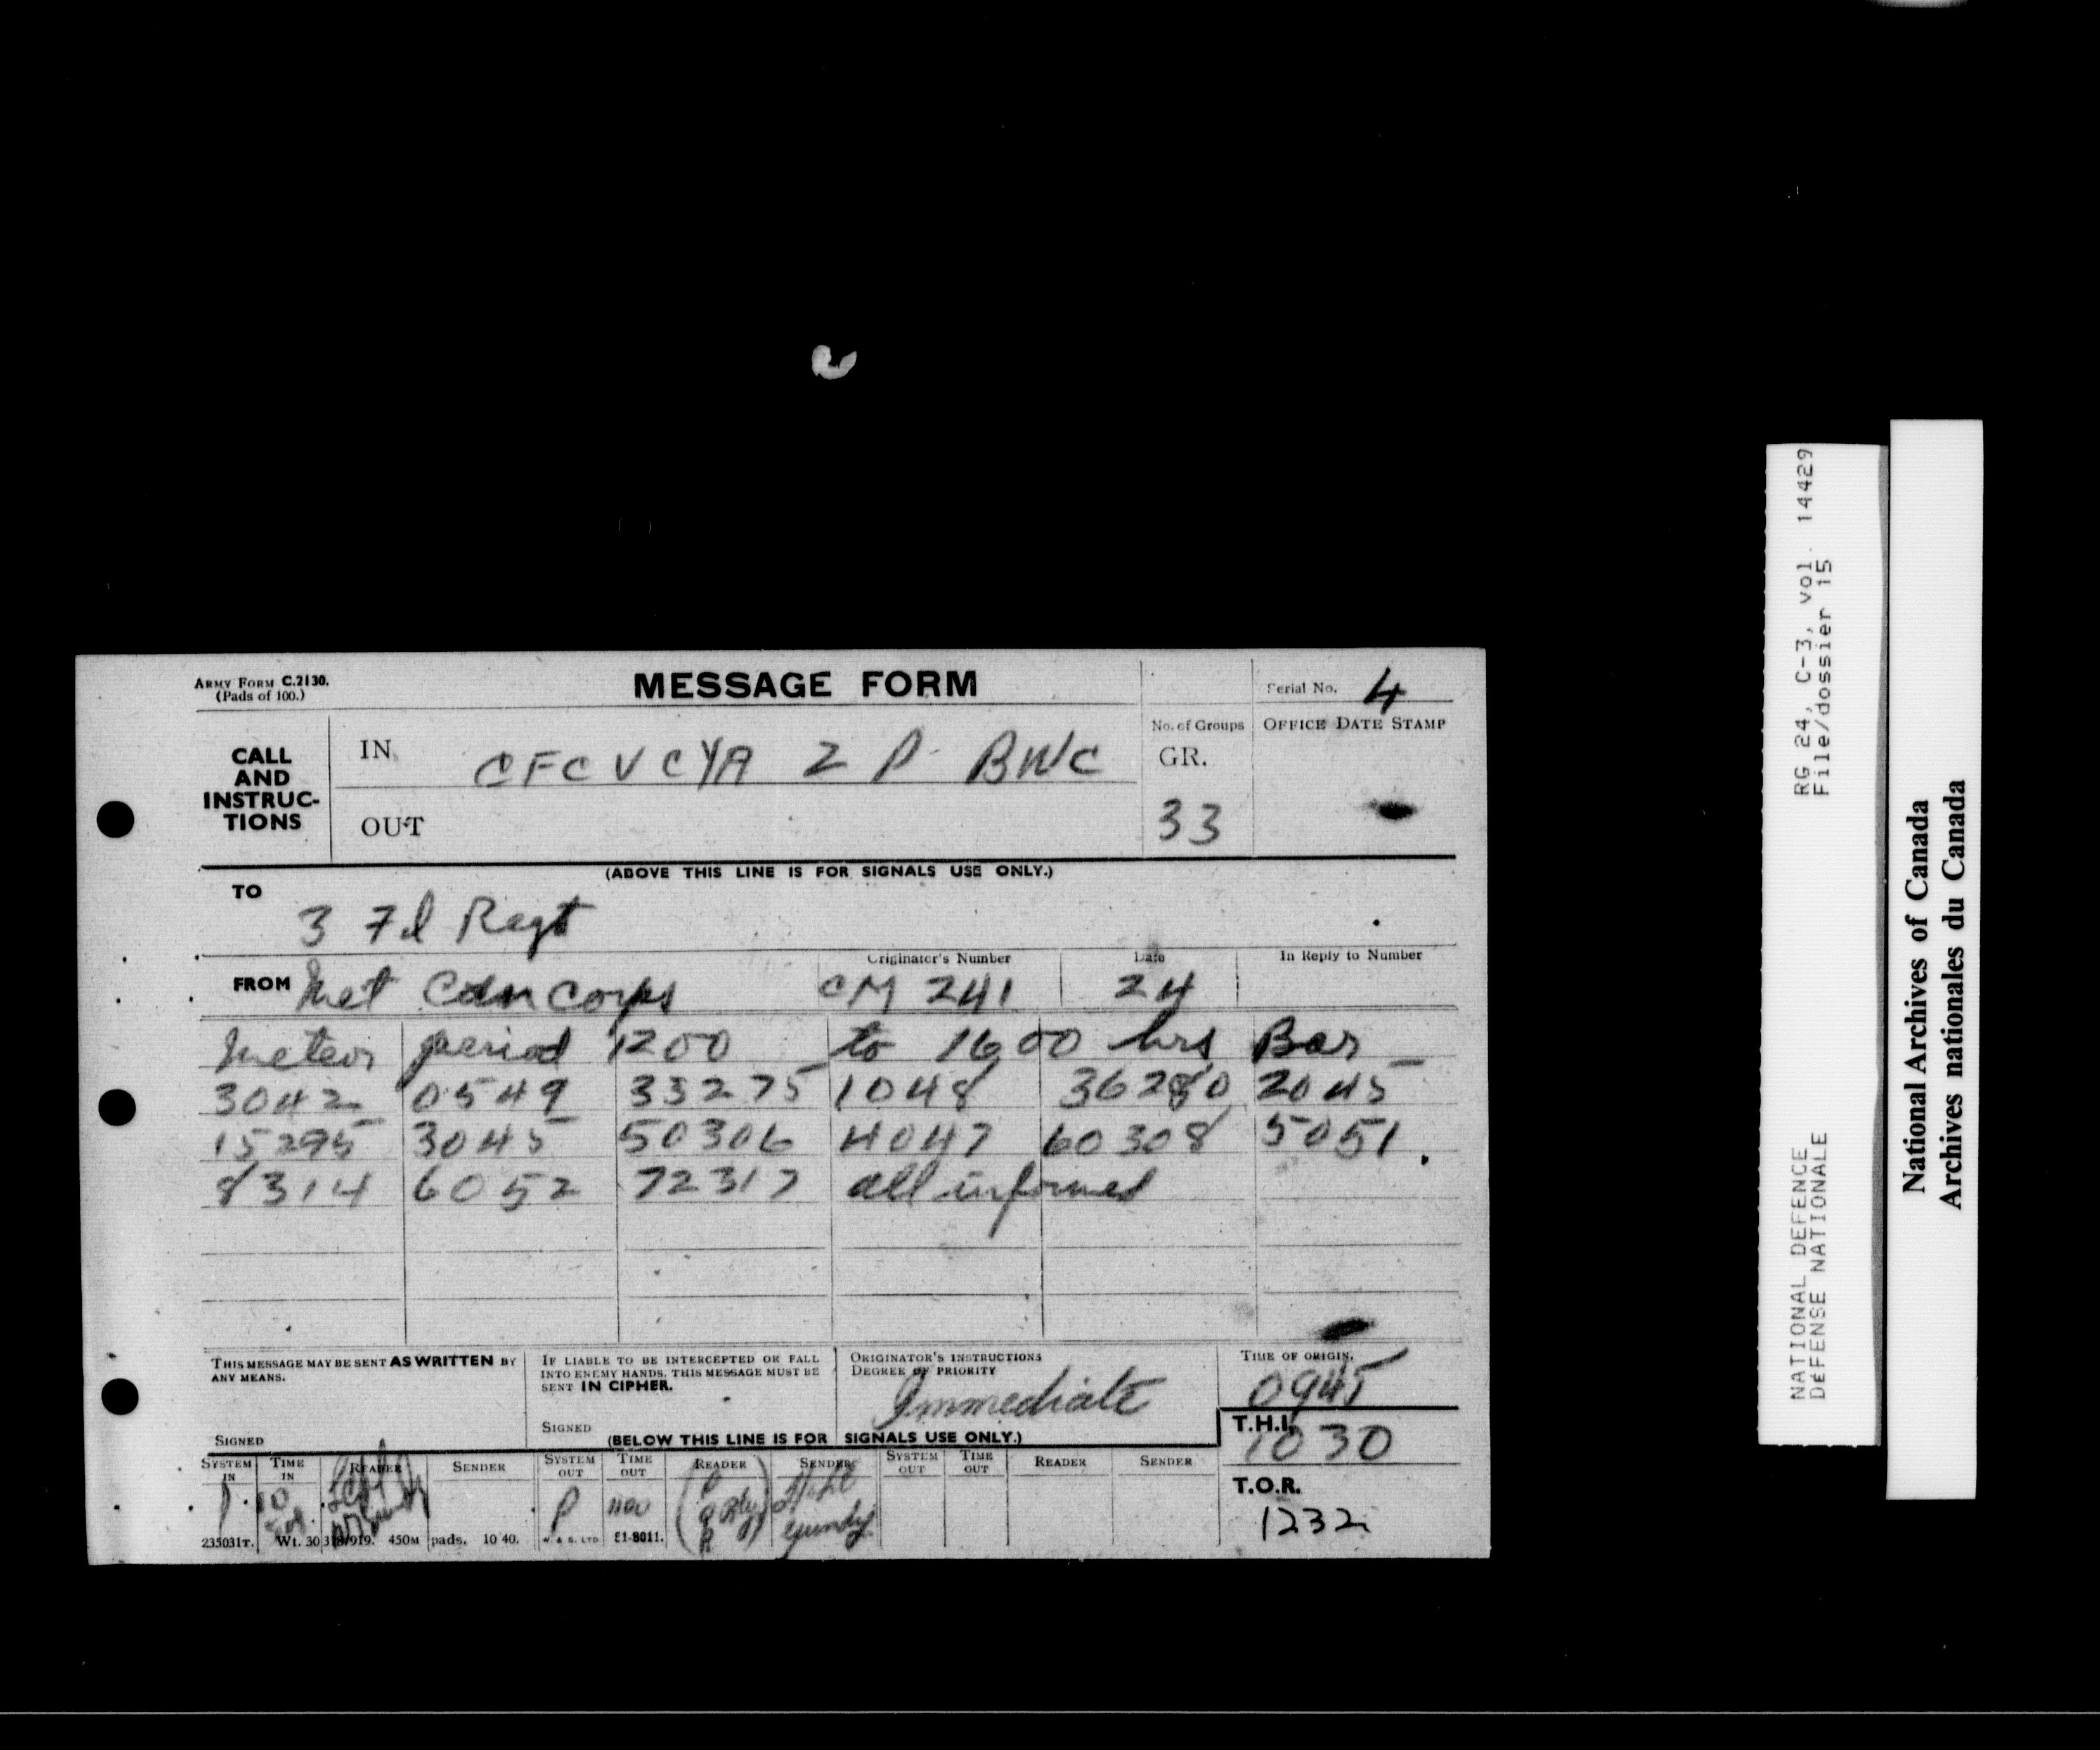 ARMY FORM C.2130.
(Pads of 100.)
MESSAGE FORM
Serial No. 4
CALL AND INSTRUC-TIONS
IN CFCVCYA 2 P BWC
No. of Groups
GR.
33
OFFICE DATE STAMP
OUT
(ABOVE THIS LINE IS FOR SIGNALS USE ONLY.)
TO
3 Fd Regt
FROM Met Cdn Corps
Originator's Number
CM 241
Date
24
In Reply to Number
Meteor period 1200 to 1600 hrs Bar
3042 0549 33275 1048 36280 2045
15295 3045 50306 4047 60308 5051
8314 6052 72317 all informed
THIS MESSAGE MAY BE SENT AS WRITTEN BY
ANY MEANS.
SIGNED
IF LIABLE TO BE INTERCEPTED OR FALL
INTO ENEMY HANDS, THIS MESSAGE MUST BE
SENT IN CIPHER.
SIGNED
ORIGINATOR'S INSTRUCTIONS
DEGREE OF PRIORITY
Immediate
TIME OF ORIGIN.
0945
(BELOW THIS LINE IS FOR SIGNALS USE ONLY.)
T.H.I.
1030
SYSTEM IN TIME IN READER SENDER SYSTEM OUT TIME OUT READER SENDER SYSTEM OUT TIME OUT READER SENDER
P 1100
T.O.R.
1232
235031T. 450M pads. 10 40. W. & S. LTD 51-8011.
RG 24, C-3, vol. 14429
File/dossier 15
NATIONAL DEFENCE
DÉFENSE NATIONALE
National Archives of Canada
Archives nationales du Canada